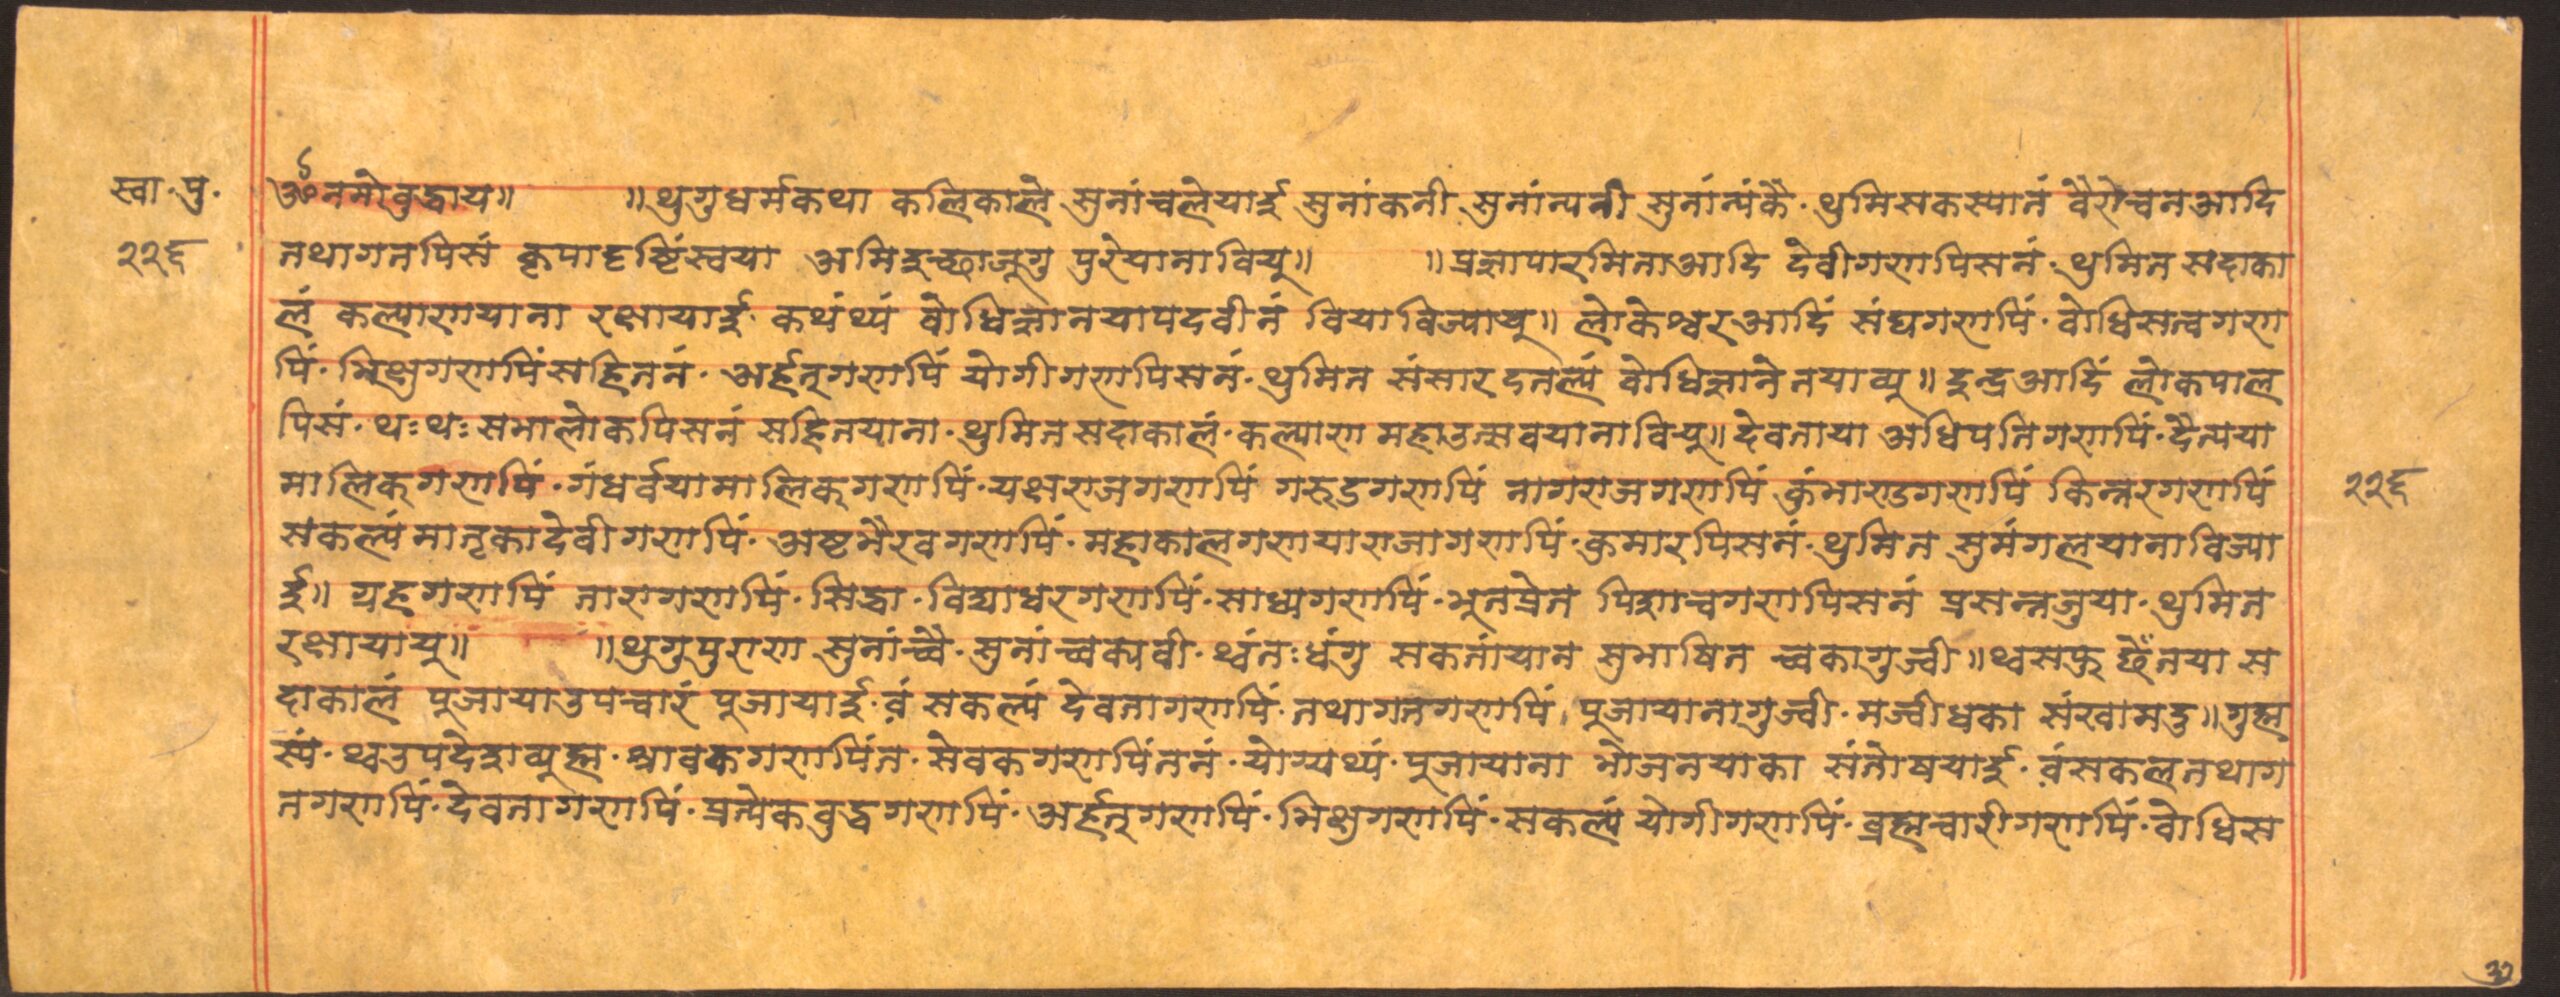 स्वा·पु·
२२६
ॐ नमो बुद्धाय॥ ॥थुगुधर्मकथा कलिकाले सुनांचलेयाई सुनांकनी सुनांन्यनी सुनांन्यंकै·थुमिसकस्यानं वैरोचनआदि
तथागतपिसं कृपादृष्टिंस्वया अमिइच्छाजूगु पुरेयानावियू॥ ॥प्रज्ञापारमिताआदि देवीगणपिसनं·थुमित सदाका
लं कल्याणयाना रक्षायाई कथंथ्यं वोधिज्ञानयापदवीनं वियाविज्यायू॥ लोकेश्वरआदिं संघगणपिं·वोधिसत्वगण
पिं·भिक्षुगणपिंसहितनं·अर्हत्गणपिं योगीगणपिसनं·थुमित संसारदतल्यं वोधिज्ञानेतयाव्यू॥ इन्द्रआदिं लोकपाल
पिसं·थःथःसभालोकपिसनं सहितयाना·थुमितसदाकालं·कल्याण महाउत्सवयानावियू॥ देवताया अधिपतिगणपिं·दैत्यया
मालिक्गणपिं·गंधर्वयामालिक्गणपिं·यक्षराजगणपिं गरुडगणपिं नागराजगणपिं कुंभाण्डगणपिं किन्नरगणपिं
सकल्यंमातृकादेवीगणपिं·अष्टभैरवगणपिं·महाकालगणयाराजागणपिं·कुमारपिसनं·थुमित सुमंगलयानाविज्या
ई॥ ग्रहगणपिं तारागणपिं·सिद्धा·विद्याधरगणपिं·साध्यगणपिं·भूतप्रेत पिशाचगणपिसनं प्रसन्नजुया·थुमित
रक्षायायू॥ ॥थुगुपुराण सुनांच्वै·सुनांच्वक्यवी·थ्वंतःधंगु सकतांयात सुभाषित च्वकागुज्वी॥थ्वसफु छेँतया स
दाकालं पूजायाउपचारं पूजायाई·वं सकल्यं देवतागणपिं·तथागतगणपिं पूजायानागुज्वी·मज्वीधका संखामदु॥गुह्म
स्यं·थ्वउपदेशव्यूह्म·श्रावकगणपिंत·सेवकगणपिंतनं·योग्यथ्यं·पूजायाना भोजनयाका संतोषयाई·वंसकलतथाग
तगणपिं·देवतागणपिं·प्रत्येकबुद्धगणपिं·अर्हत्गणपिं·भिक्षुगणपिं·सकल्यं योगीगणपिं·ब्रह्मचारीगणपिं·वोधिस
२२६